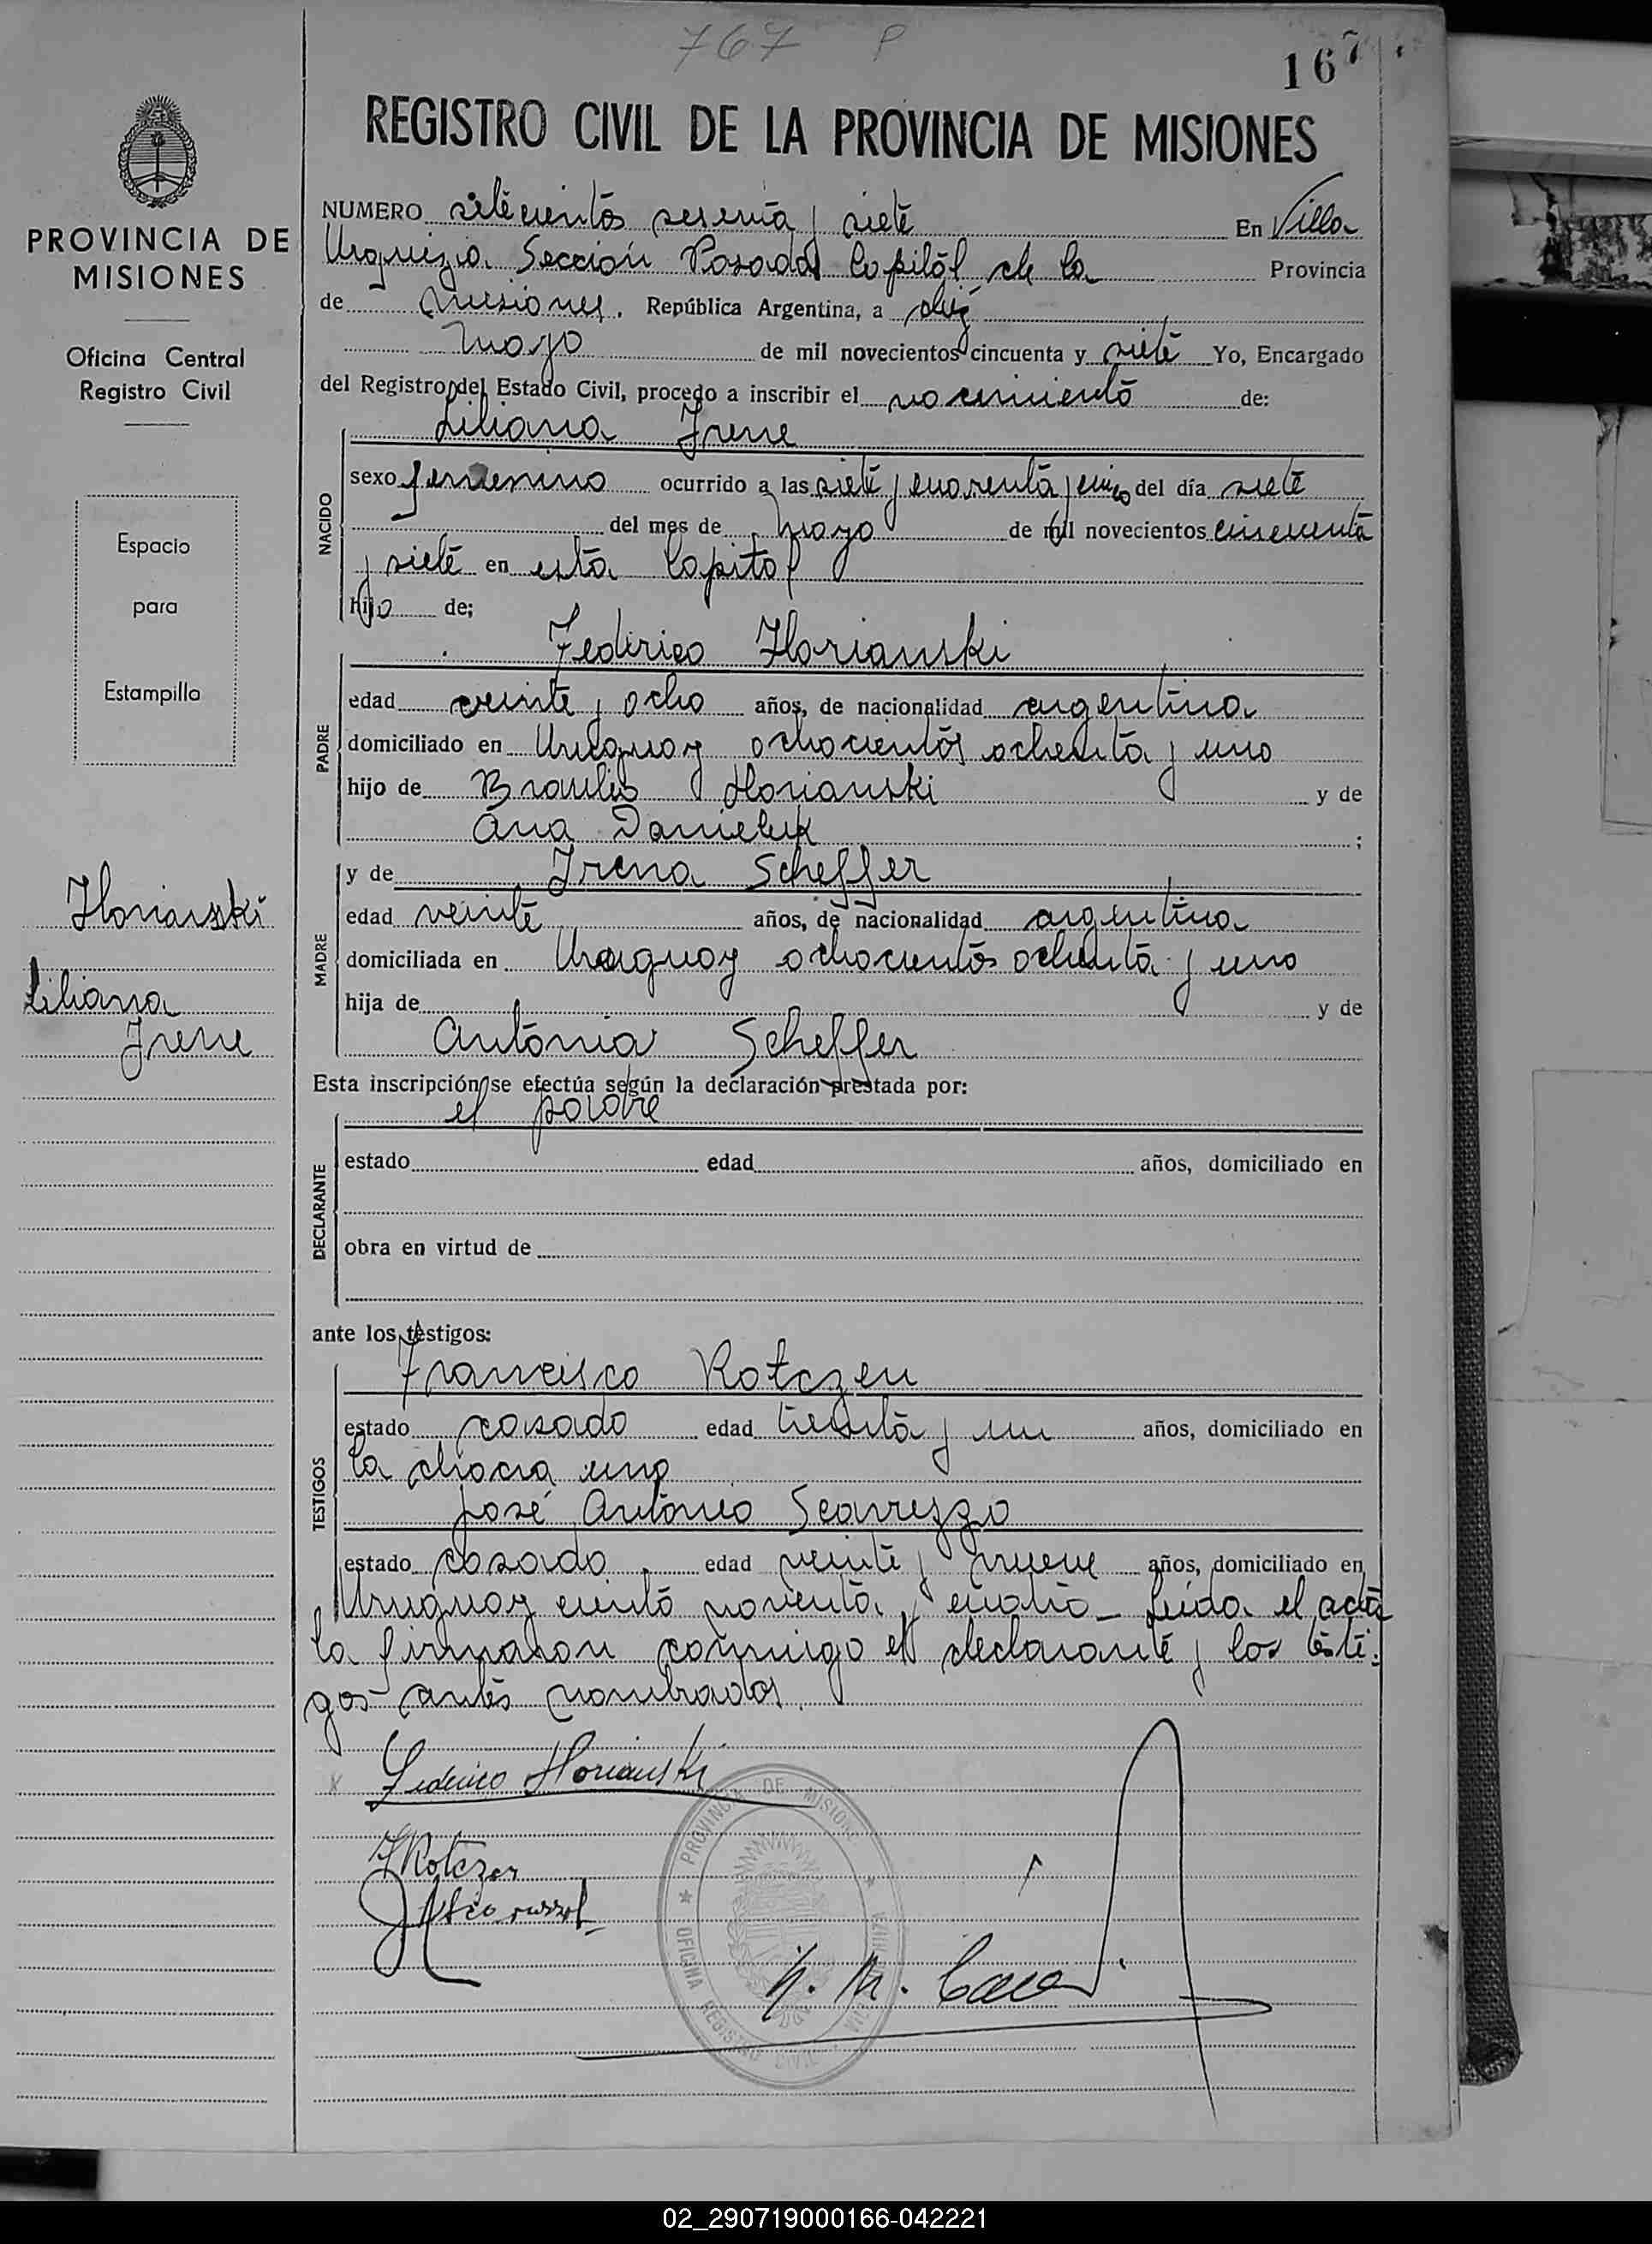 767 P
167
REGISTRO CIVIL DE LA PROVINCIA DE MISIONES
NUMERO setecientos sesenta y siete En Villa
Urquiza Sección Posadas Capital de la Provincia
de Misiones. República Argentina, a diez
mayo de mil novecientos cincuenta y siete Yo, Encargado
del Registro del Estado Civil, procedo a inscribir el nacimiento de:
Liliana Irene
NACIDO
sexo femenino ocurrido a las siete y cuarenta y cinco del día siete
del mes de mayo de mil novecientos cincuenta
y siete en esta Capital
hijo de;
Federico Horianski
PADRE
edad veinte y ocho años, de nacionalidad argentina
domiciliado en Uruguay ochocientos ochenta y uno
hijo de Braulio Horianski y de
Ana Danieluk ;
y de Irena Scheffer
MADRE
edad veinte años, de nacionalidad argentina
domiciliada en Uruguay ochocientos ochenta y uno
hija de y de
Antonia Scheffer
Esta inscripción se efectúa según la declaración prestada por:
el padre
DECLARANTE
estado edad años, domiciliado en
obra en virtud de
ante los testigos:
Francisco Kotczen
TESTIGOS
estado casado edad treinta y un años, domiciliado en
la chacra uno
José Antonio
estado casado edad veinte y nueve años, domiciliado en
Uruguay ciento noventa y cuatro - Leida el acta
la firmaron conmigo el declarante y los testi-
gos antes nombrados.
Federico Horianski
PROVINCIA DE MISIONES
OFICINA REGISTRO CIVIL
PROVINCIA DE
MISIONES
Oficina Central
Registro Civil
Espacio
para
Estampilla
Horianski
Liliana
Irene
02_290719000166-042221